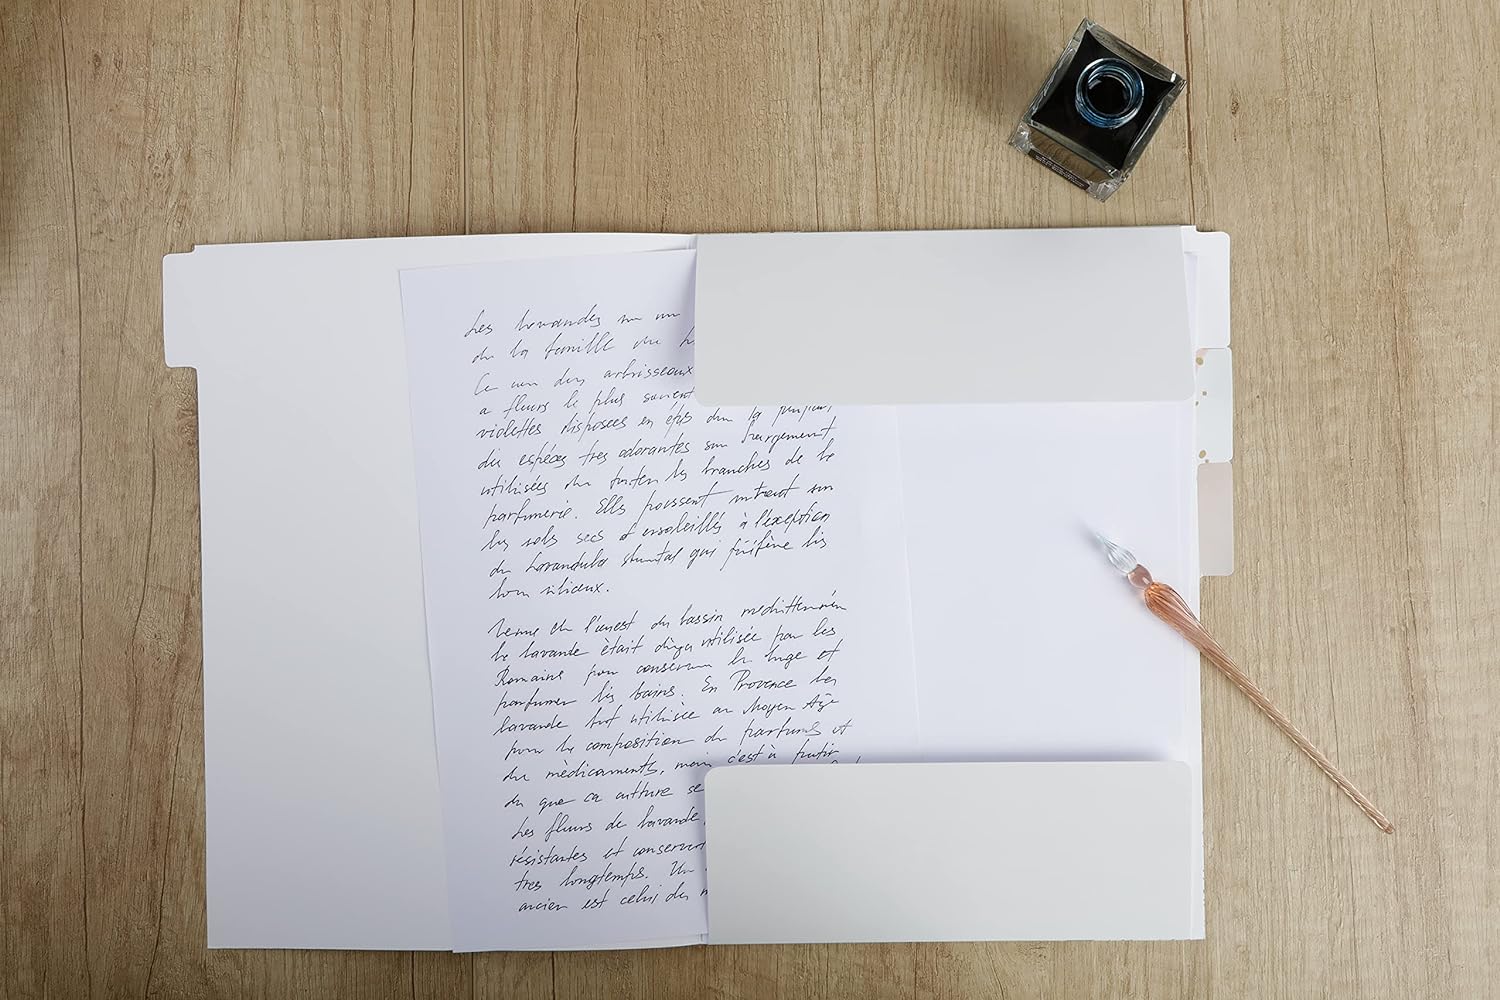 Les lavandes sont un
de la famille des L
Ce sont des arbrisseaux
à fleurs le plus souvent
violettes disposées en épis dont la plupart
des espèces très odorantes sont largement
utilisées dans toutes les branches de la
parfumerie. Elles poussent surtout sur
les sols secs et ensoleillés à l'exception
du Lavandula stoechas qui préfère les
sols siliceux.
Venue de l'ouest du bassin méditerranéen
la lavande était déjà utilisée par les
Romains pour conserver le linge et
parfumer les bains. En Provence la
lavande fut utilisée au Moyen Age
pour la composition de parfums et
de médicaments, mais c'est à partir
du que sa culture se
Les fleurs de lavande,
résistantes et conservent
très longtemps. Un
ancien est celui du